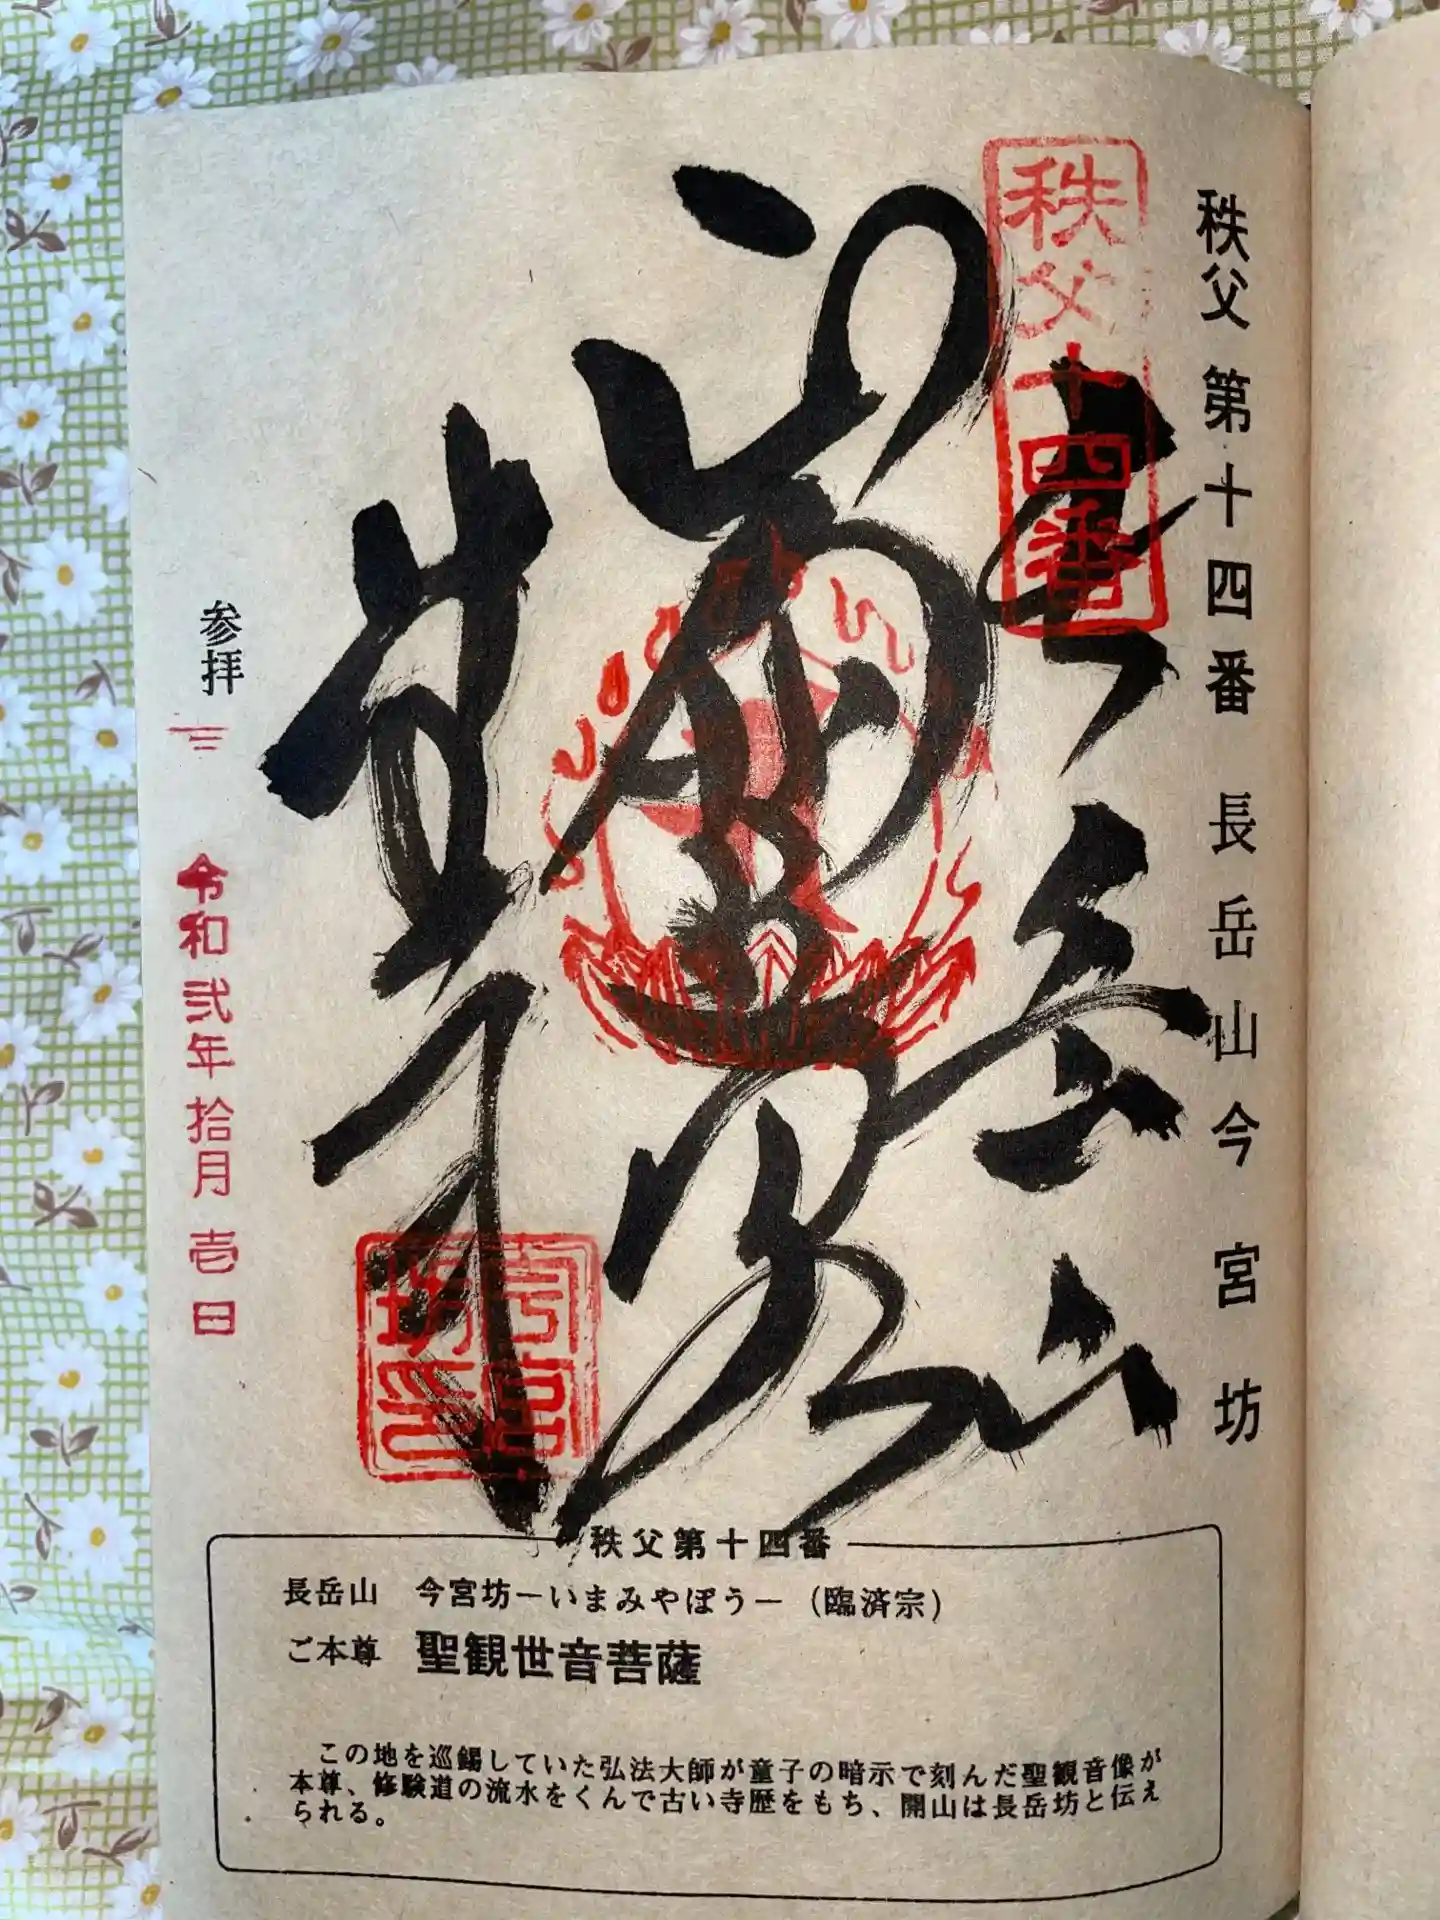 秩父第十四番 長岳山今宮坊
秩父十四番
長岳山
参拝
令和弐年拾月壱日
秩父第十四番
長岳山 今宮坊ーいまみやぼうー（臨済宗）
ご本尊 聖観世音菩薩
この地を巡錫していた弘法大師が童子の暗示で刻んだ聖観音像が
本尊、修験道の流水をくんで古い寺歴をもち、開山は長岳坊と伝え
られる。